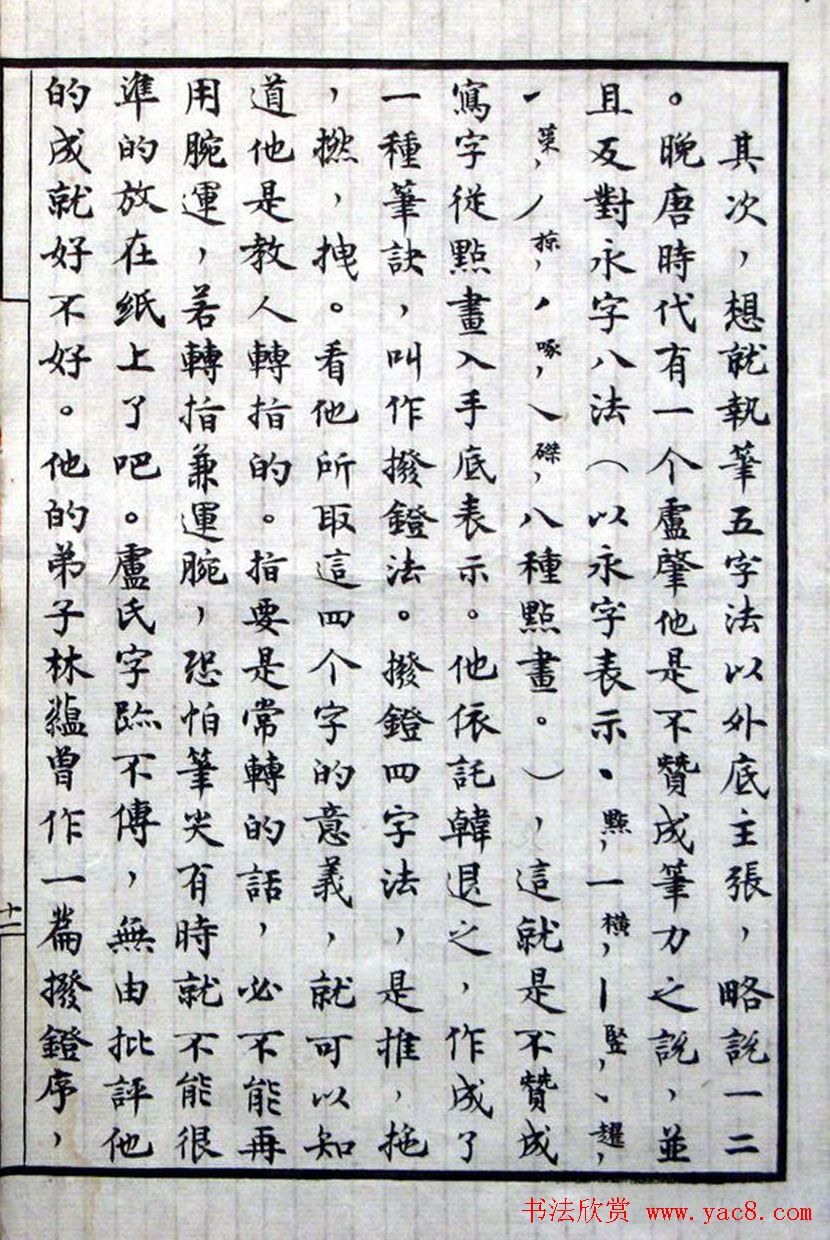 其次，想就執筆五字法以外底主張，略說一二
。晚唐時代有一个盧肇他是不贊成筆力之說，並
且反對永字八法（以永字表示丶點，一橫，丨竪，㇀趯，
㇀策，丿掠，丿啄，㇏磔，八種點畫。），這就是不贊成
寫字從點畫入手底表示。他依託韓退之，作成了
一種筆訣，叫作撥鐙法。撥鐙四字法，是推，拖
，撚，拽。看他所取這四个字的意義，就可以知
道他是教人轉指的。指要是常轉的話，必不能再
用腕運，若轉指兼運腕，恐怕筆尖有時就不能很
準的放在紙上了吧。盧氏字跡不傳，無由批評他
的成就好不好。他的弟子林蘊曾作一篇撥鐙序，
十二
书法欣赏 www.yac8.com